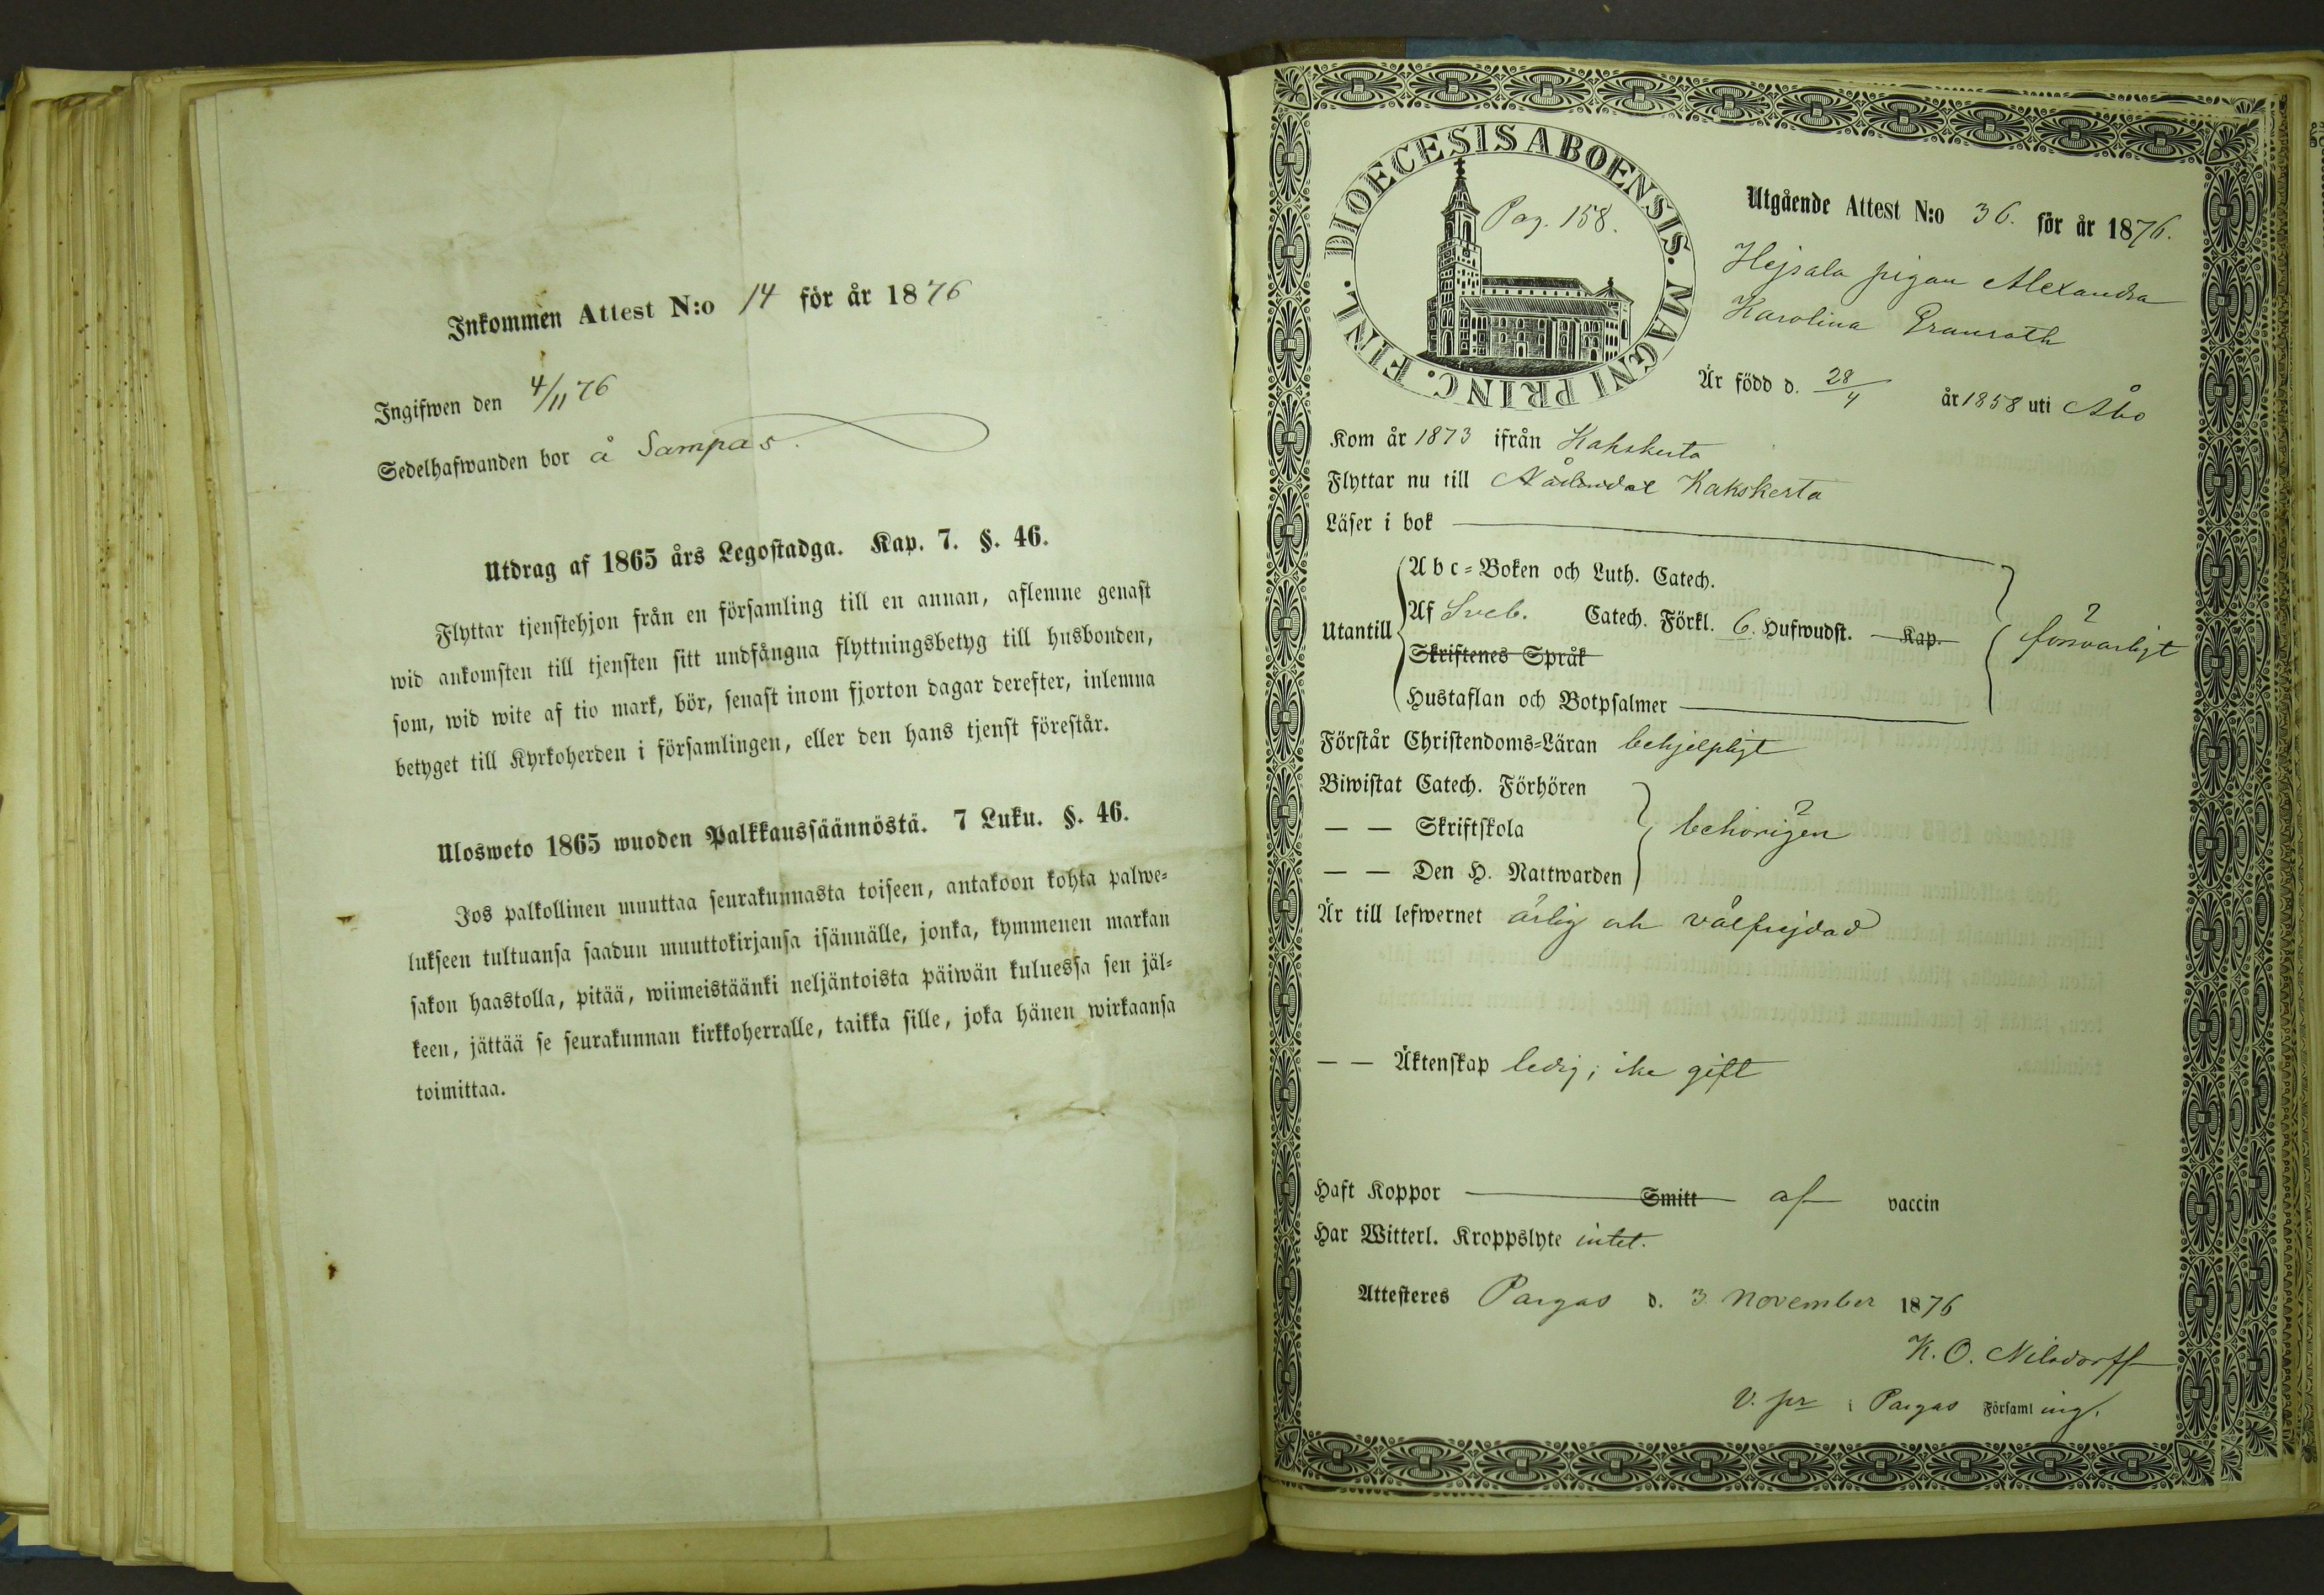 Inkommen Attest N:o 14 för år 1876
Ingifwen den 4/11 76
Sedelhafwanden bor å Sampas.
Utdrag af 1865 års Legostadga. Kap. 7. §. 46.
Flyttar tjenstehjon från en församling till en annan, aflemne genast
wid ankomsten till tjensten sitt undfångna flyttningsbetyg till husbonden,
som, wid wite af tio mark, bör, senast inom fjorton dagar derefter, inlemna
betyget till Kyrkoherden i församlingen, eller den hans tjenst förestår.
Ulosweto 1865 wuoden Palkkaussäännöstä. 7 Luku. §. 46.
Jos palkollinen muuttaa seurakunnasta toiseen, antakoon kohta palwe-
lukseen tultuansa saadun muuttokirjansa isännälle, jonka, kymmenen markan
sakon haastolla, pitää, wiimeistäänki neljäntoista päiwän kuluessa sen jäl-
keen, jättää se seurakunnan kirkkoherralle, taikka sille, joka hänen wirkaansa
toimittaa.
DIOECESIS ABOENSIS. MAGNI PRINC. FINL.
Pag. 158.
Utgående Attest N:o 36. för år 1876.
Hejsala pigan Alexandra
Karolina Granroth
Är född d. 28/4 år 1858 uti Åbo
Kom år 1873 ifrån Kakskerta
Flyttar nu till Kakskerta
Läser i bok
Utantill
Abc-Boken och Luth. Catech.
Af Sveb. Catech. Förkl. 6. Hufwudst. Kap.
försvarligt
Skriftenes Språk
Hustaflan och Botpsalmer
Förstår Christendoms-Läran behjelpligt
Biwistat Catech. Förhören
— — Skriftskola
behörigen
— — Den H. Nattwarden
Är till lefwernet ärlig och välfrejdad
— — Äktenskap ledig; ike gift
Haft Koppor Smitt af vaccin
Har Witterl. Kroppslyte intet.
Attesteres Pargas d. 3 November 1876
K. O. Nilsdorff
V. pr i Pargas Församling.